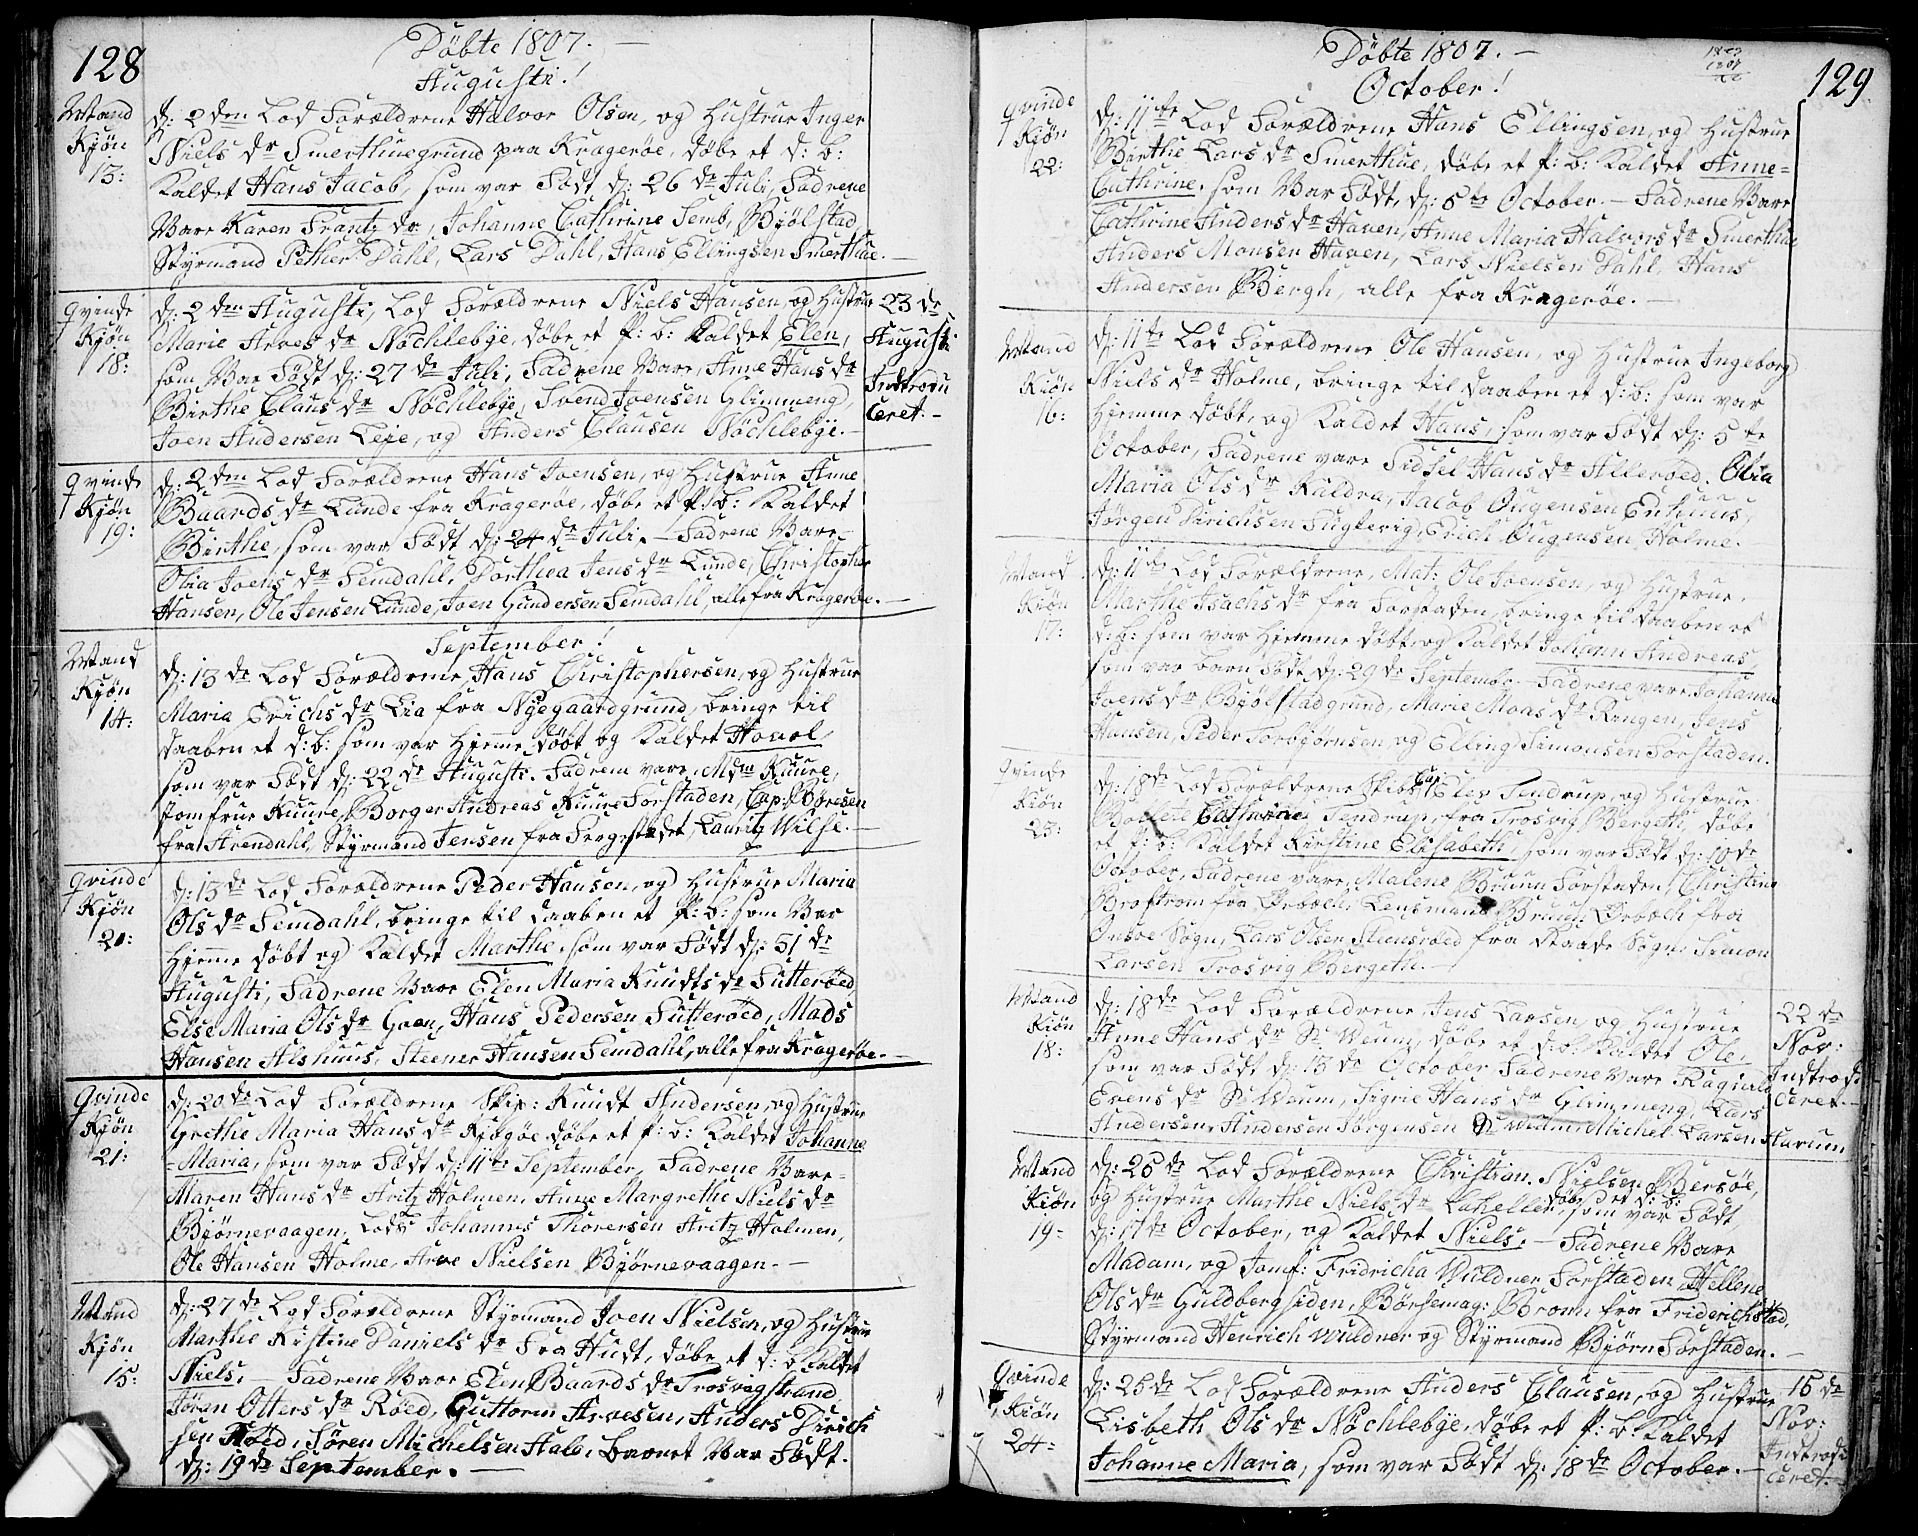 128
Döbte 1807. —
Augusti!
Mand
Kjön
13:
d: 2den Lod Forældrene Halvor Olsen, og Hustrue Inger
Niels dr Smerthuegrund paa Kragerøe, døbe et d: b:
Kaldet Hans Jacob, som var Født d: 26de Juli, Fadrene
Vare Karen Frantz dr, Johanne Cathrine Semb, Bjølstad
Styrmand Pether Dahl, Lars Dahl, Hans Ellingsen Smerthue. —
qvinde
Kjön
18:
d: 2den Augusti, Lod Forældrene Niels Hansen, og Hustrue
Marie Arves dr Nøchlebÿe, døbe et P: b: Kaldet Elen,
som Var Født d: 27de Juli, Fadrene Vare, Anne Hans dr
Birthe Claus dr Nøchlebÿe, Svend Joensen Glimmeng,
Joen Andersen Leje, og Anders Clausen Nøchlebÿe. —
23de
Augusti
Indtrodu
ceret. —
qvinde
Kjön
19:
d: 2den Lod Forældrene Hans Joensen, og Hustrue Anne
Baards dr Lunde fra Kragerøe, døbe et P: b: Kaldet
Birthe, som var Født d: 24de Juli. — Fadrene Vare
Olia Joens dr Semdahl, Dorthea Jens dr Lunde, Christopher
Hansen, Ole Jensen Lunde, Joen Gundersen Semdahl, alle fra Kragerøe. —
September!
Mand
Kjön
14:
d: 13de Lod Forældrene Hans Christophersen, og Hustrue
Maria Erichs dr Lia fra Nÿegaardgrund, bringe til
Daaben et d: b: som var Hjemme døbt og Kaldet
som var Født d: 22de Augusti. Fadrene vare, Mdm Kuure,
Jomfrue Kuure, Borger Andreas Kuure Forstaden, Cap: Børesen
fra Arendahl, Styrmand Jensen fra Lauritz Wilse. —
qvinde
Kjön
20:
d: 13de Lod Forældrene Peder Hansen, og Hustrue Maria
Ols dr Semdahl, bringe til Daaben et P: b: som Var
Hjemme døbt og Kaldet Marthe, som var Født d: 31de
Augusti, Fadrene Vare Elen Maria Knudts dr Sutterøed
Else Maria Ols dr Gaen, Hans Pedersen Sutterøed, Mads
Hansen Alshuus, Steener Hansen Semdahl, alle fra Kragerøe. —
qvinde
Kjön
21:
d: 20de Lod Forældrene Skip: Knudt Andersen, og Hustrue
Grethe Maria Hans dr Kjøgøe døbe et P: b: Kaldet Johanne
-Maria, som var Født d: 11te September, Fadrene Vare-
Maren Hans dr Aritz Holmen, Anne Margrethe Niels dr
Bjørnevaagen, Lods Johannes Thorersen Aritz Holmen,
Ole Hansen Holme, Arve Nielsen Bjørnevaagen. —
Mand
Kjön
15:
d: 27de Lod Forældrene Styrmand Joen Nielsen, og Hustrue
Marthe Kistine Daniels dr Fra Hudt, døbe et d: b: Kaldet
Niels. — Fadrene Vare Elen Baards dr Trosvigstrand
Jöran Otters dr Røed, Guttorm Arvesen, Anders Dirich
sen Røed, Søren Michelsen Hale. Barnet Var Født.
d: 19de September. —
129
Döbte 1807. —
October!
qvinde
Kjön
22:
d: 11te Lod Forældrene Hans Ellingsen, og Hustrue
Birthe Lars dr Smerthue, døbe et P: b: Kaldet Anne-
Cathrine, som Var Født, d: 5te October. — Fadrene Vare
Cathrine Anders dr Haven, Anne Maria Halvors dr Smerthue
Anders Monsen Haven, Lars Nielsen Dahl, Hans
Andersen Bergh, alle fra Kragerøe. —
Mand
Kiön
16:
d: 11te Lod Forældrene Ole Hansen, og Hustrue Ingeborg
Niels dr Holme, bringe til Daaben et d: b: som var
Hjemme døbt, og Kaldet Hans, som var Født d: 5te
October, Fadrene vare Sidsel Hans dr Allerøed. Olia
Maria Ols dr Kaldra, Jacob Ougensen Enhuus,
Jörgen Dirichsen Fuglevig, Erich Ougensen Holme.
Mand
Kiön
17:
d: 11te Lod Forældrene, Mat: Ole Joensen, og Hustrue
Marthe Isachs dr fra Forstaden, bringe til Daaben et
d: b: som var Hjemme døbt, og Kaldet Johann Andreas,
som var barn Født d: 29de Septembr. — Fadrene vare Johanne
Joens dr Bjølstadgrund, Marie Moas dr Rangen, Jens
Hansen, Peder Torbjørnsen, og Elling Simonsen Forstaden.
qvinde
Kiön
23:
d: 18de Lod Forældrene Skibs Cap: Eles Tendrup, og Hustrue
Bolette Cathrine Tendrup, fra Trosvig Bergeth, døbe
et P: b: Kaldet Kirstine Elisabeth, som var Født d: 10de
October, Fadrene vare, Malene Bruun Forstaden, Christine
Brostrom fra Lensmand Bruun fra
Onsøe Sogn, Lars Olsen Steensrøed fra Raade Sogn, Simon
Larsen Trosvig Bergeth. —
Mand
Kiön
18:
d: 18de Lod Forældrene Jens Larsen, og Hustrue
Anne Hans dr Weum, døbe et d: b: Kaldet Ole,
som var Født d: 13de October Fadrene Vare Ragnild
Evens dr Weum, Sigrie Hans dr Glimmeng, Lars
Andersen, Andersen Jörgensen Weum, Michel Larsen Harum.
22de
Nov:
Indtrodu
ceret. —
Mand
Kiön
19-
d: 25de Lod Forældrene Christian Nielsen Bersöe,
og Hustrue Marthe Niels dr Lahellen, døbe et d: b: som var Født
d: 17de October, og Kaldet Niels. — Fadrene Vare
Madam, og Jomf: Fridricha Wuldner Forstaden, Hellene
Ols dr Guldbergsiden, Børsemag: Bronn fra Friderichstad,
Styrmand Henrich Wuldner og Styrmand Bjørn Forstaden. —
Qvinde
Kiön
24:
d: 25de Lod Forældrene Anders Clausen, og Hustrue
Lisbeth Ols dr Nøchlebÿe, døbe et P: b: Kaldet
Johanne Maria, som var Født d: 18de October. —
15de
Nov:
Indtrodu
ceret. —